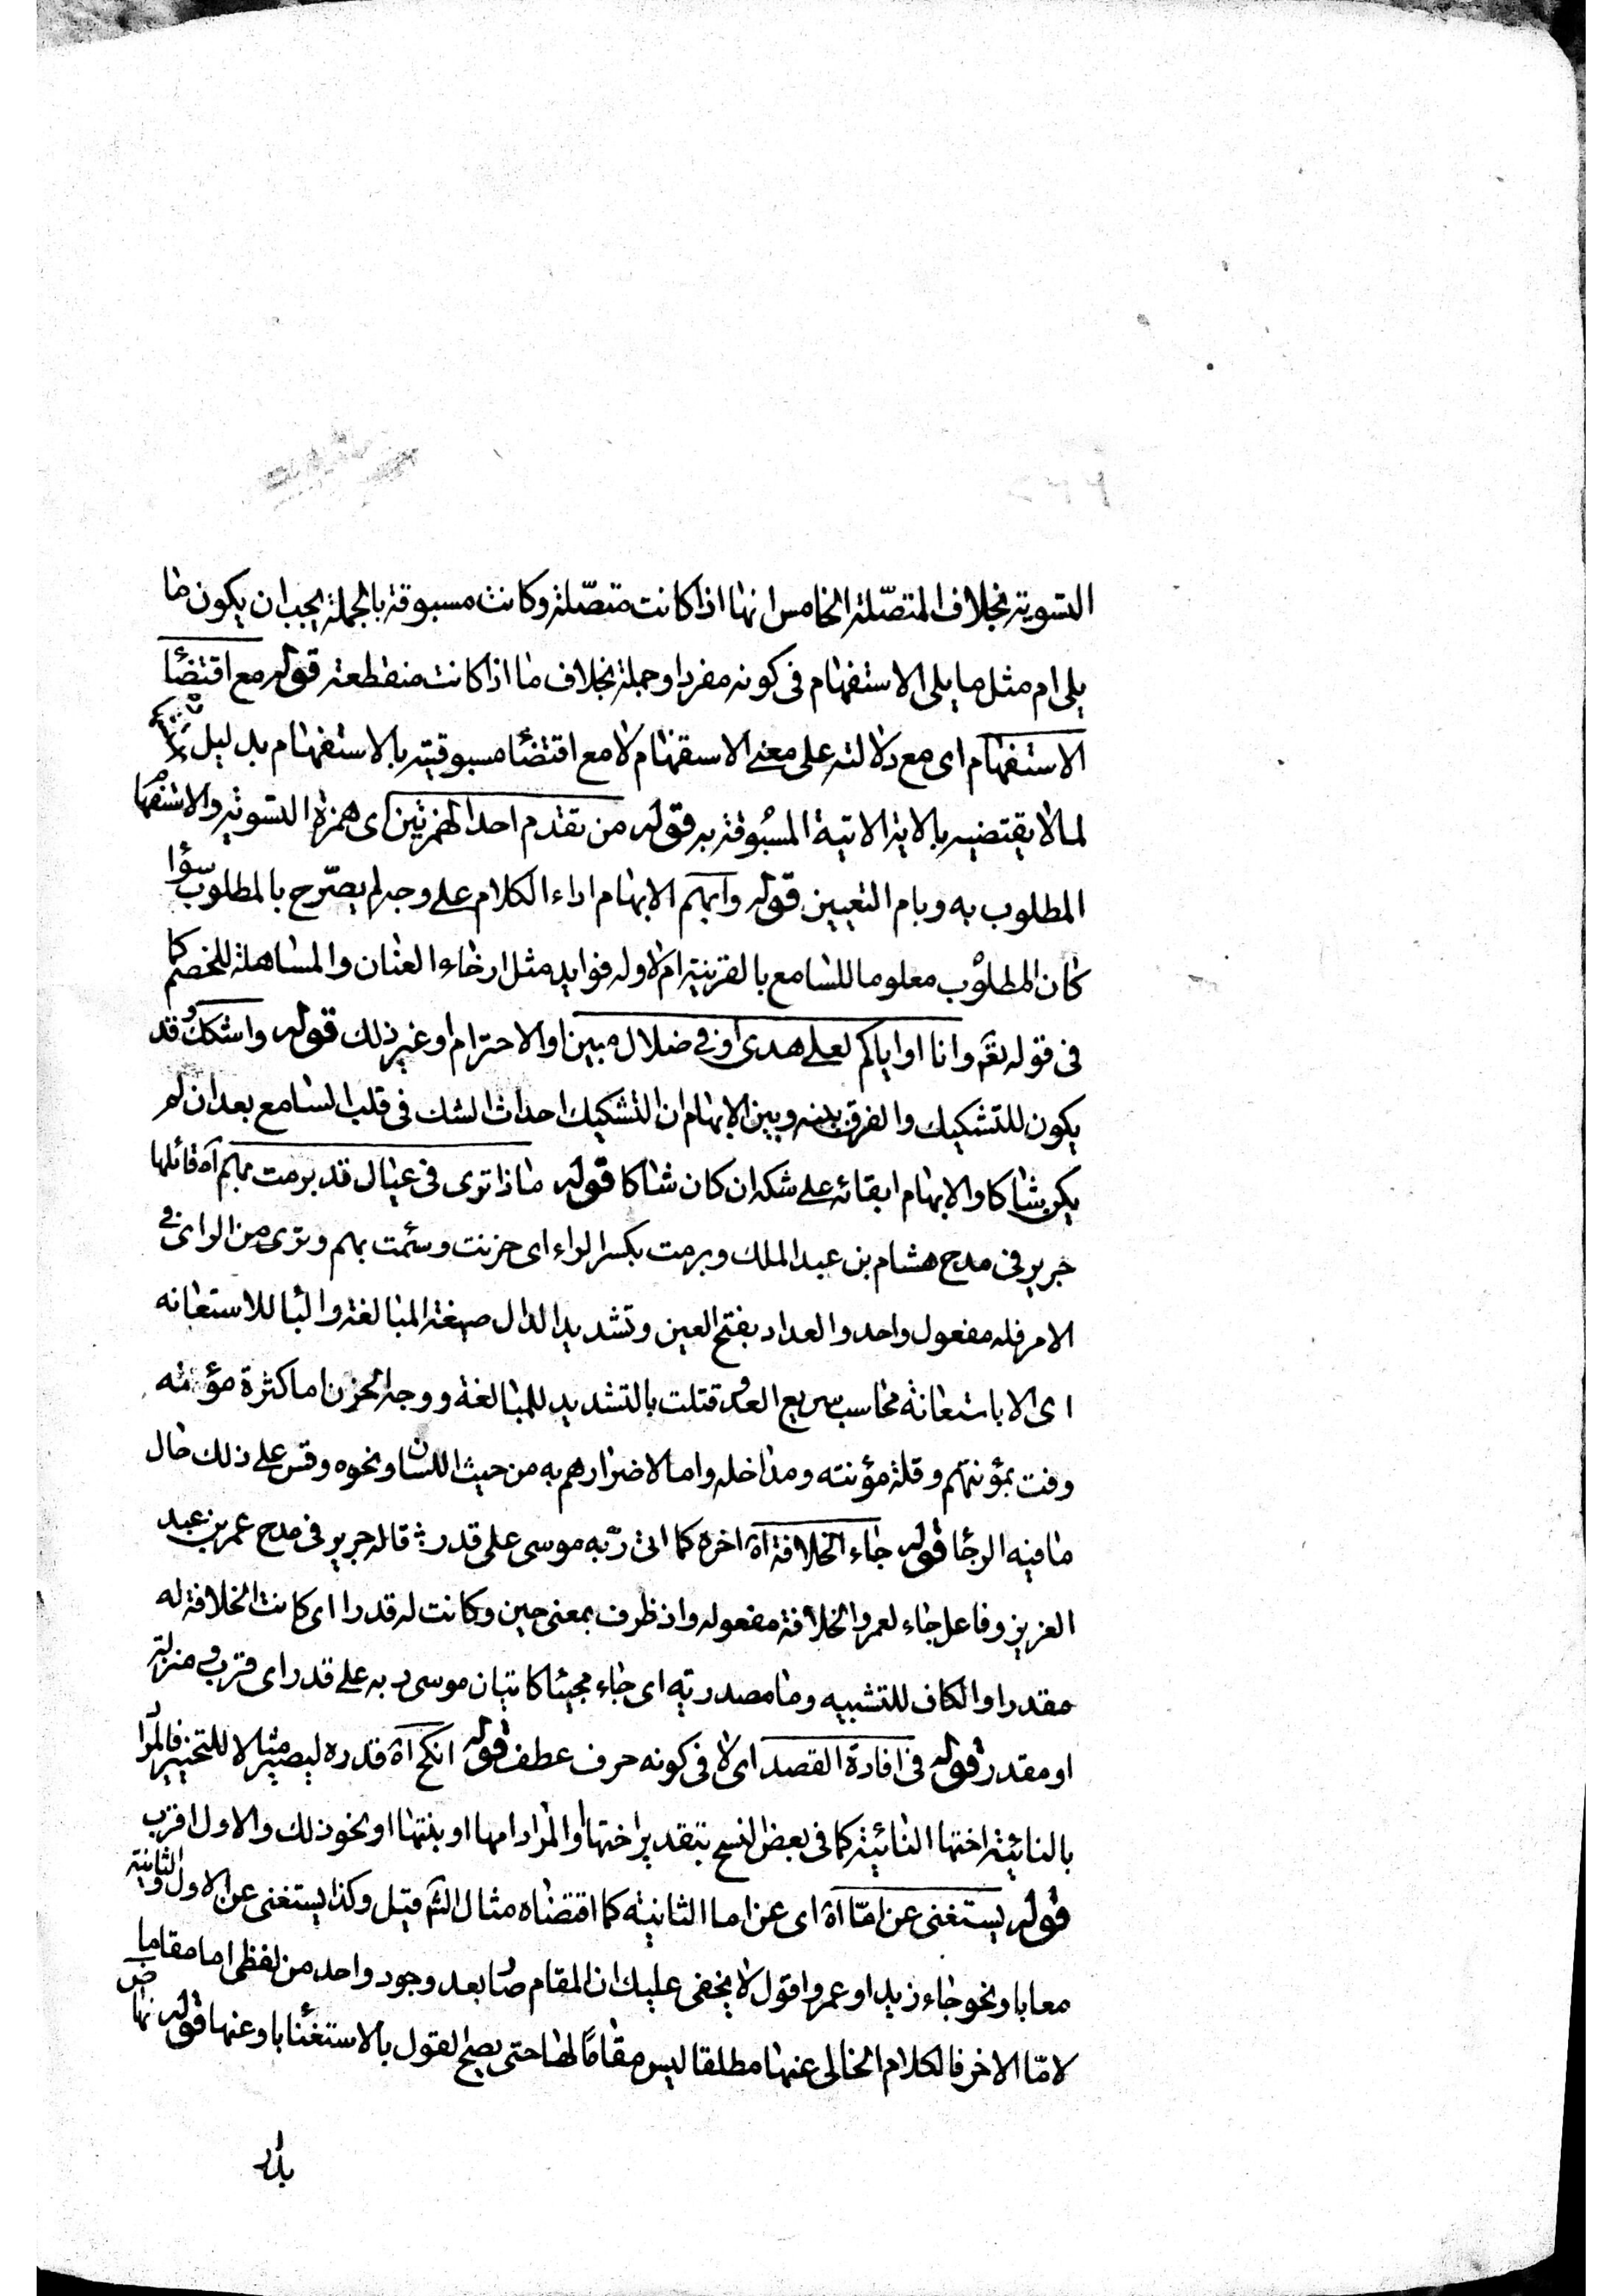 التسوية بخلاف المتصّلة الخامس انها اذا كانت متصّلة وكانت مسبوقة بالجملة يجب ان يكون ما
يلى ام مثل ما يلى الاستفهام فى كونه مفردا وجملة بخلاف ما اذا كانت منقطعة قوله مع اقتضاء
الاستفهام اى مع دلالته على معنى الاستفهام لا مع اقتضاء مسبوقيته بالاستفهام بدليل
لما لا يقتضيه بالاية الاتية المسبوقة به قوله من تقدم احد الهمزتين اى همزة التسوية والاستفها
المطلوب به وبام التعيين قوله وابهم الابهام اداء الكلام على وجه لم يصّرح بالمطلوب سؤا
كان المطلوب معلوما للسامع بالقرينة ام لا وله فوايد مثل ارخاء العنان والمساهلة للخصم كما
فى قوله تعۤ وانا او اياكم لعلى هدى او فى ضلال مبين او الاحترام او غير ذلك قوله واشكك وقد
يكون للتشكيك والفرق بينه وبين الابهام ان التشكيك احداث الشك فى قلب السامع بعد ان لم
يكن شاكا والابهام ابقائه على شكه ان كان شاكا قوله ماذا ترى فى عيال قد برمت بهم آه قائلها
جرير فى مدح هشام بن عبد الملك وبرمت بكسر الراء اى حزنت وسئمت بهم وترى من الراى فى
الامر فله مفعول واحد والعداد بفتح العين وتشديد الدال صيغة المبالغة والبا للاستعانه
اى الا باستعانة محاسب سريع العد وقتلت بالتشديد للمبالغة ووجه الحزن اما كثرة مؤنته
وفت بمؤنتهم وقلة مؤنته ومداخله واما لاضرارهم به من حيث اللسان ونحوه وقس على ذلك حال
ما فيه الرجا قوله جاء الخلافة آه اخره كما اتى ربّه موسى على قدر قاله جرير فى مدح عمر بن عبد
العزيز وفاعل جاء لعمر والخلافة مفعوله واذ ظرف بمعنى حين وكانت له قدرا اى كانت الخلافة له
مقدرا والكاف للتشبيه وما مصدرية اى جاء مجيئا كاتيان موسى ربه على قدر اى قرب ومنزلة
او مقدر قوله فى افادة القصد اى لا فى كونه حرف عطف قوله انكح آه قدره ليصير مثالا للتخيير فالمرا
بالنائية اختها النائية كما فى بعض النسخ بتقدير اختها او المراد امها او بنتها او نحو ذلك والاول اقرب
قوله يستغنى عن امّا آه اى عن اما الثانية كما اقتضاه مثال الشۤ قيل وكذا يستغنى عن الاول والثانية
معا باو نحو جاء زيد او عمرو اقول لا يخفى عليك ان المقام صار بعد وجود واحد من لفظى اما مقاما
لامّا الاخر فالكلام الخالى عنها مطلقا ليس مقامًا لها حتى يصح القول بالاستغنا باو عنها قوله